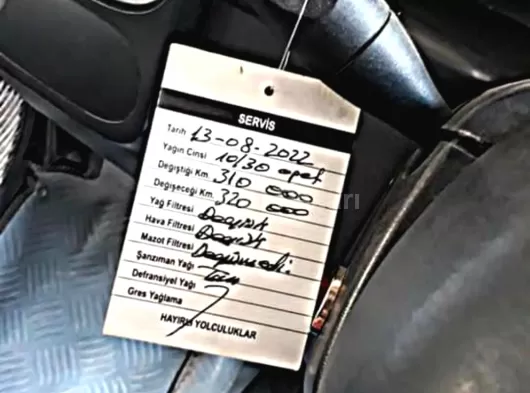 SERVİS
Tarih 13-08-2022
Yağın Cinsi 10/30 opet
Değiştiği Km. 310 000
Değişeceği Km. 320 000
Yağ Filtresi Değişti
Hava Filtresi Değişti
Mazot Filtresi Değişmedi
Şanzıman Yağı Tam
Defransiyel Yağı
Gres Yağlama
HAYIRLI YOLCULUKLAR